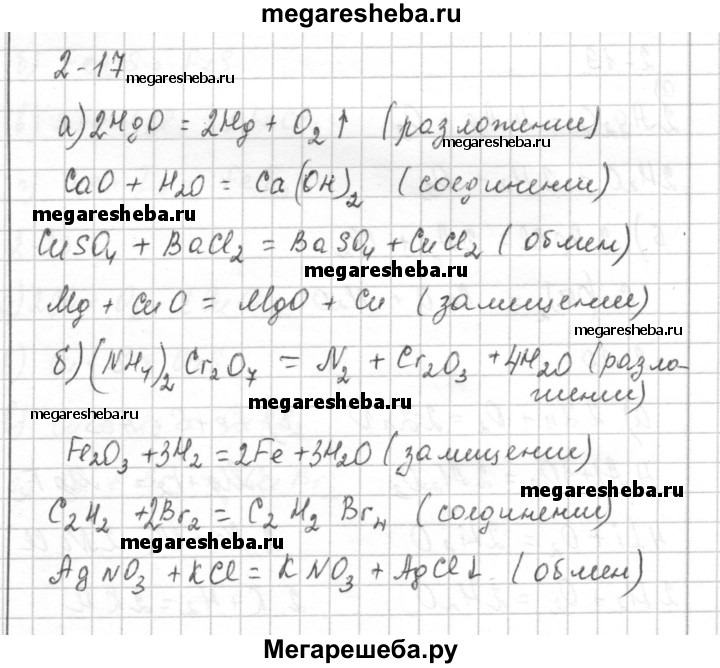 megaresheba.ru
2-17
megaresheba.ru
а) 2HgO = 2Hg + O2 ↑ (разложение)
megaresheba.ru
CaO + H2O = Ca(OH)2 (соединение)
megaresheba.ru
CuSO4 + BaCl2 = BaSO4 + CuCl2 (обмен)
megaresheba.ru
Mg + CuO = MgO + Cu (замищение)
megaresheba.ru
б) (NH4)2 Cr2O7 = N2 + Cr2O3 + 4H2O (разло-
жение)
megaresheba.ru
megaresheba.ru
Fe2O3 + 3H2 = 2Fe + 3H2O (замищение)
megaresheba.ru
C2H2 + 2Br2 = C2 H2 Br4 (соединение)
megaresheba.ru
AgNO3 + KCl = KNO3 + AgCl↓ (обмен)
Мегарешеба.ру